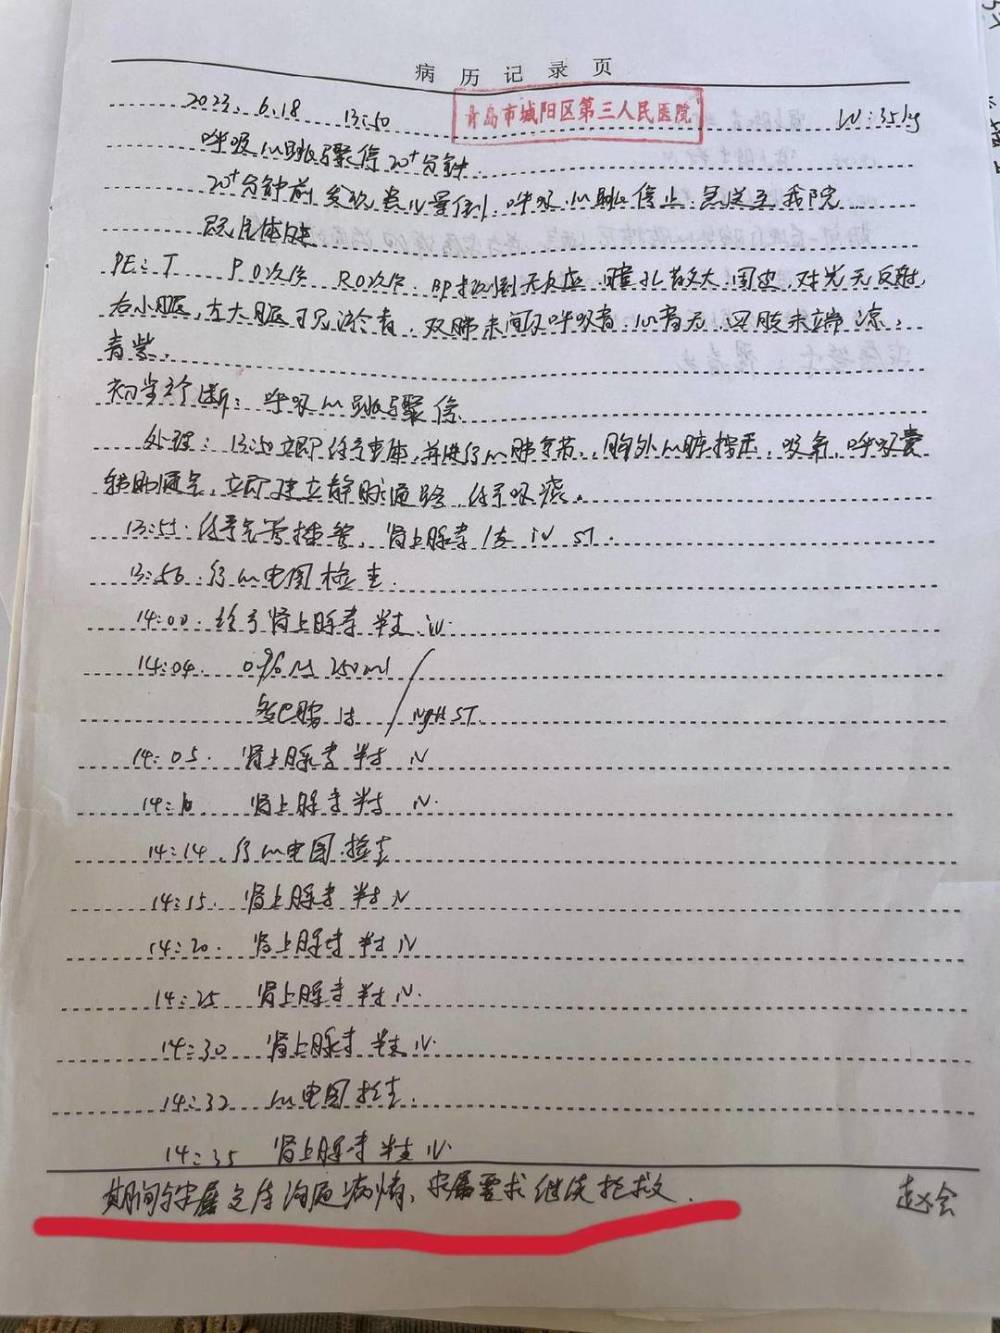 病历记录页
2023.6.18 13:50 青岛市城阳区第三人民医院 W:35kg
呼吸心跳骤停20+分钟
20+分钟前发现患儿晕倒,呼吸心跳停止,急送至我院
既往体健
PE: T P0次/分 R0次/分 BP 测无反应,瞳孔散大,固定,对光无反射,
右小腿,左大腿可见淤青,双肺未闻及呼吸音,心音无,四肢末端凉,
青紫.
初步诊断:呼吸心跳骤停
处理:13:50立即给予平体,并进行心肺复苏,胸外心脏按压,吸氧,呼吸囊
辅助通气,立即建立静脉通路,给予吸痰。
13:55.给予气管插管,肾上腺素1支 iV ST.
13:56.行心电图检查.
14:00.给予肾上腺素半支 iV.
14:04. 0.9% NS 250ml
多巴胺 1支 ivgtt ST.
14:05. 肾上腺素半支 iV
14:10 肾上腺素半支 iV.
14:14.行心电图检查
14:15. 肾上腺素半支 iV
14:20. 肾上腺素半支 iV
14:25 肾上腺素半支 iV.
14:30 肾上腺素半支 iV.
14:32 心电图检查.
14:35 肾上腺素半支 iV.
期间与家属交待沟通病情,家属要求继续抢救. 赵会